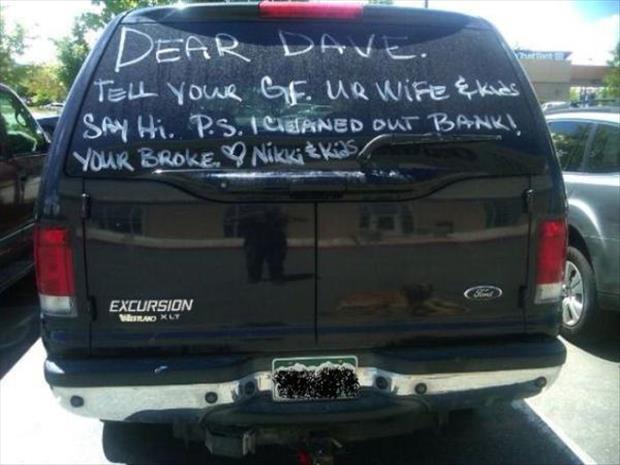 DEAR DAVE.
TELL YOUR GF. UR WIFE & KIDS
SAY Hi. P.S. I CLEANED OUT BANK!
YOUR BROKE. ♡ NIKKi & KiDS
EXCURSION
XLT
Ford